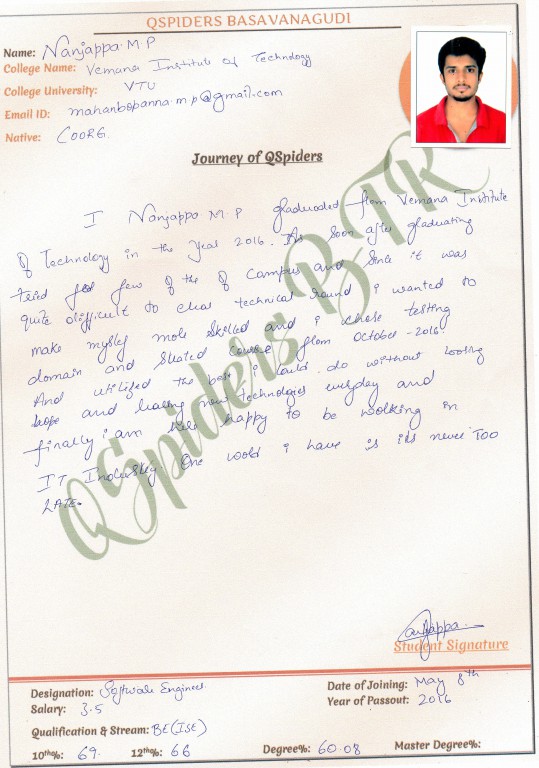 QSPIDERS BASAVANAGUDI
Name: Nanjappa M.P
College Name: Vemana Institute of Technology
College University: VTU
Email ID: mahanbopanna.m.p@gmail.com
Native: COORG.
Journey of QSpiders
I Nanjappa M.P graduated from Vemana Institute
of Technology in the year 2016. As soon after graduating
tried for few of the of campus and since it was
quite difficult to clear technical round i wanted to
make myself more skilled and i chose testing
domain and started course from October-2016.
And utilized the best i could do without loosing
hope and learning new technologies everyday and
finally i am here happy to be working in
IT Industry. One word i have is its never TOO
LATE.
QSpiders BTR
Nanjappa
Student Signature
Designation: Software Engineer
Date of Joining: May 8th
Salary: 3.5
Year of Passout: 2016
Qualification & Stream: BE(ISE)
10th%: 69. 12th%: 66 Degree%: 60.08 Master Degree%: